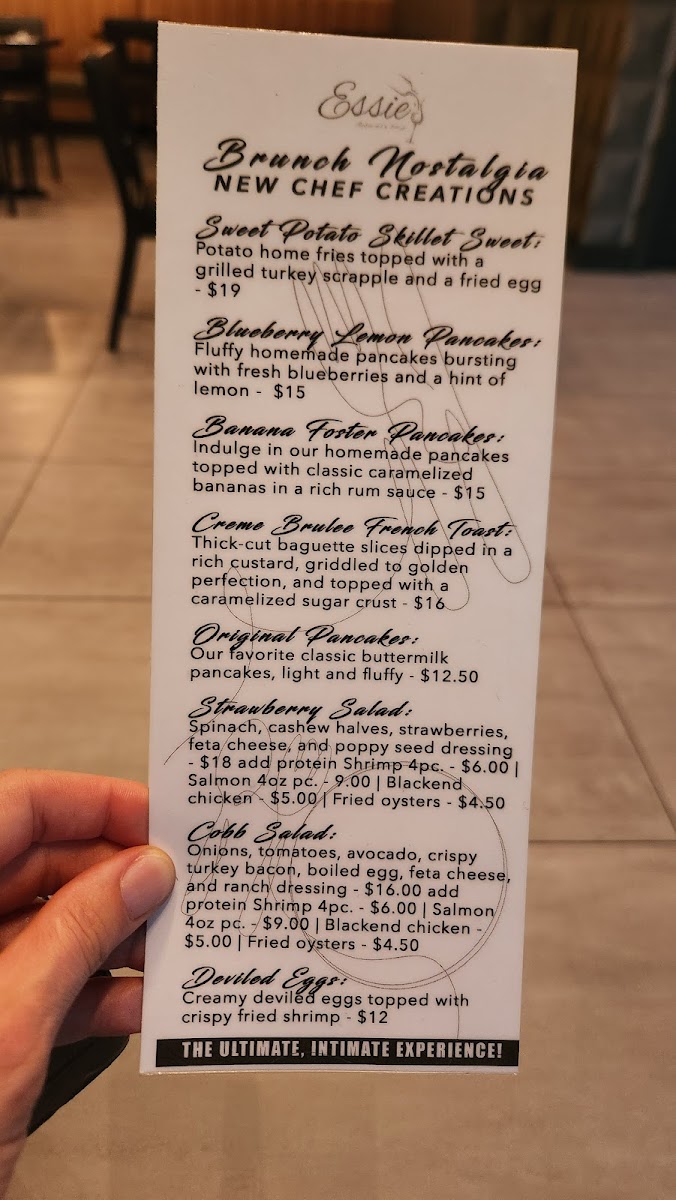 Essie's
Brunch Nostalgia
NEW CHEF CREATIONS
Sweet Potato Skillet Sweet:
Potato home fries topped with a
grilled turkey scrapple and a fried egg
- $19
Blueberry Lemon Pancakes:
Fluffy homemade pancakes bursting
with fresh blueberries and a hint of
lemon - $15
Banana Foster Pancakes:
Indulge in our homemade pancakes
topped with classic caramelized
bananas in a rich rum sauce - $15
Creme Brulee French Toast:
Thick-cut baguette slices dipped in a
rich custard, griddled to golden
perfection, and topped with a
caramelized sugar crust - $16
Original Pancakes:
Our favorite classic buttermilk
pancakes, light and fluffy - $12.50
Strawberry Salad:
Spinach, cashew halves, strawberries,
feta cheese, and poppy seed dressing
- $18 add protein Shrimp 4pc. - $6.00 |
Salmon 4oz pc. - 9.00 | Blackend
chicken - $5.00 | Fried oysters - $4.50
Cobb Salad:
Onions, tomatoes, avocado, crispy
turkey bacon, boiled egg, feta cheese,
and ranch dressing - $16.00 add
protein Shrimp 4pc. - $6.00 | Salmon
4oz pc. - $9.00 | Blackend chicken -
$5.00 | Fried oysters - $4.50
Deviled Eggs:
Creamy deviled eggs topped with
crispy fried shrimp - $12
THE ULTIMATE, INTIMATE EXPERIENCE!